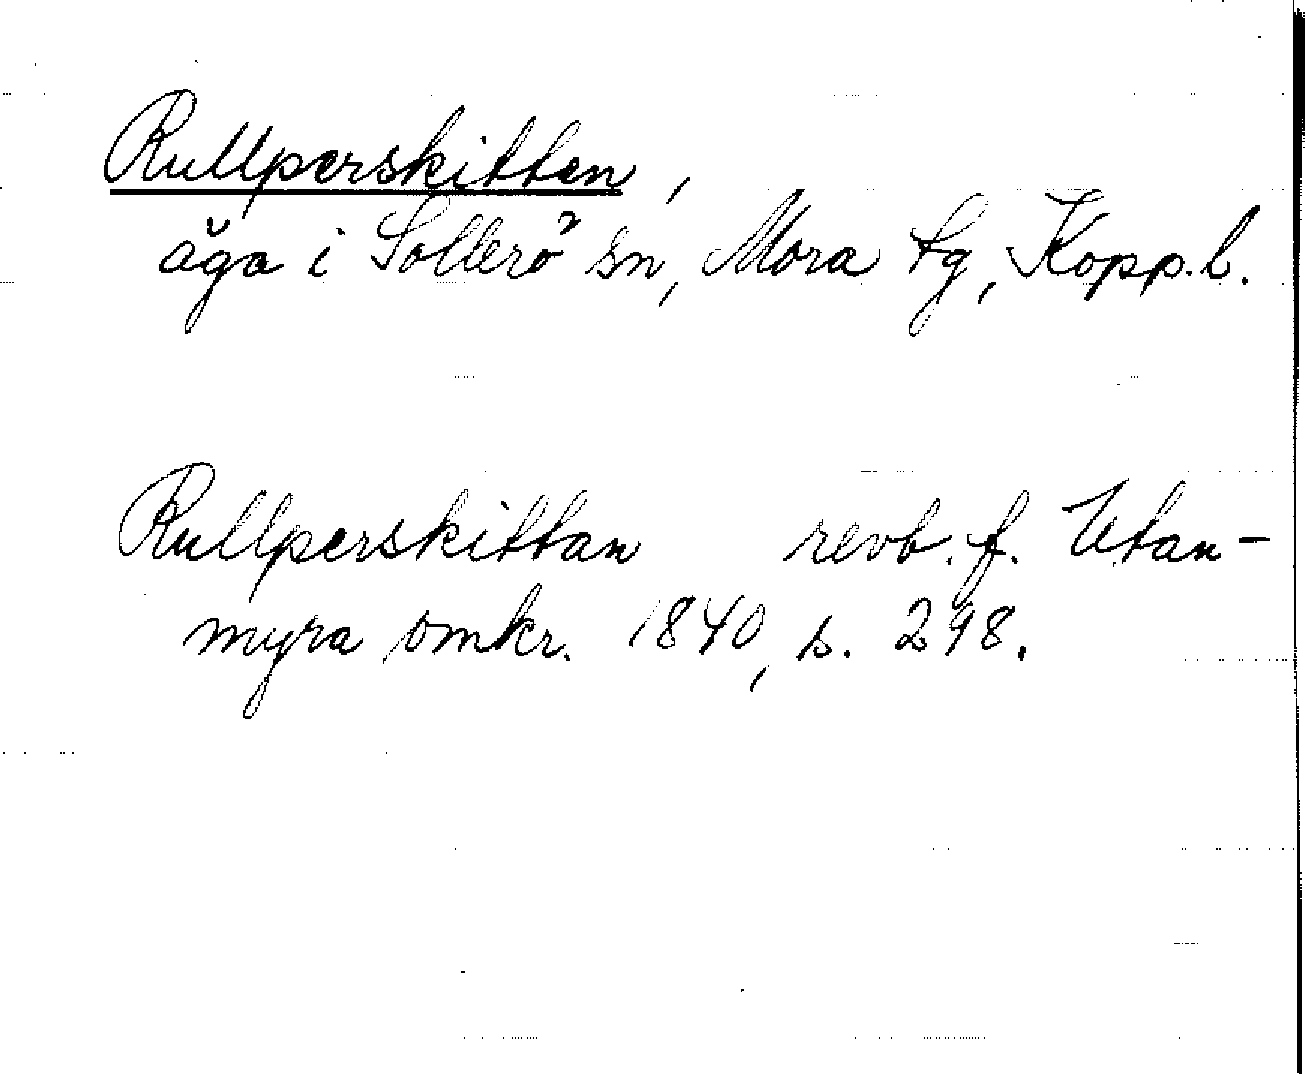 Rullperskitten,
äga i Sollerö sn, Mora tg, Kopp.l.
Rullperskittan revb. f. Utan-
myra omkr. 1840, s. 298.